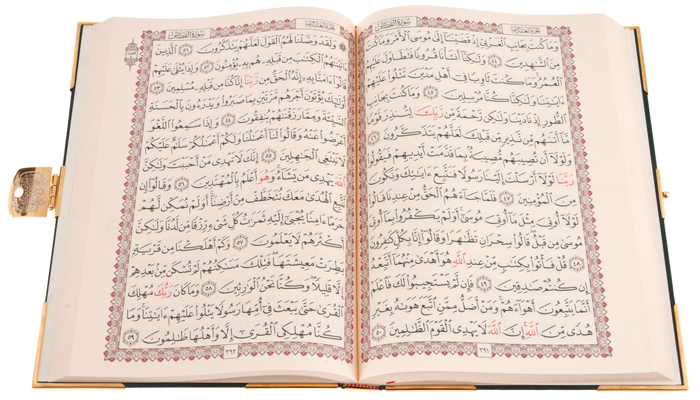 الجزء العشرون سورة القصص
وَمَا كُنتَ بِجَانِبِ ٱلْغَرْبِيِّ إِذْ قَضَيْنَآ إِلَىٰ مُوسَى ٱلْأَمْرَ وَمَا كُنتَ
مِنَ ٱلشَّـٰهِدِينَ ٤٤ وَلَـٰكِنَّآ أَنشَأْنَا قُرُونًا فَتَطَاوَلَ عَلَيْهِمُ
ٱلْعُمُرُ وَمَا كُنتَ ثَاوِيًا فِىٓ أَهْلِ مَدْيَنَ تَتْلُوا۟ عَلَيْهِمْ
ءَايَـٰتِنَا وَلَـٰكِنَّا كُنَّا مُرْسِلِينَ ٤٥ وَمَا كُنتَ بِجَانِبِ
ٱلطُّورِ إِذْ نَادَيْنَا وَلَـٰكِن رَّحْمَةً مِّن رَّبِّكَ لِتُنذِرَ قَوْمًا
مَّآ أَتَىٰهُم مِّن نَّذِيرٍ مِّن قَبْلِكَ لَعَلَّهُمْ يَتَذَكَّرُونَ ٤٦
وَلَوْلَآ أَن تُصِيبَهُم مُّصِيبَةٌۢ بِمَا قَدَّمَتْ أَيْدِيهِمْ فَيَقُولُوا۟
رَبَّنَا لَوْلَآ أَرْسَلْتَ إِلَيْنَا رَسُولًا فَنَتَّبِعَ ءَايَـٰتِكَ وَنَكُونَ
مِنَ ٱلْمُؤْمِنِينَ ٤٧ فَلَمَّا جَآءَهُمُ ٱلْحَقُّ مِنْ عِندِنَا قَالُوا۟
لَوْلَآ أُوتِىَ مِثْلَ مَآ أُوتِىَ مُوسَىٰٓ أَوَلَمْ يَكْفُرُوا۟ بِمَآ أُوتِىَ
مُوسَىٰ مِن قَبْلُ قَالُوا۟ سِحْرَانِ تَظَـٰهَرَا وَقَالُوٓا۟ إِنَّا بِكُلٍّ كَـٰفِرُونَ
٤٨ قُلْ فَأْتُوا۟ بِكِتَـٰبٍ مِّنْ عِندِ ٱللَّهِ هُوَ أَهْدَىٰ مِنْهُمَآ أَتَّبِعْهُ
إِن كُنتُمْ صَـٰدِقِينَ ٤٩ فَإِن لَّمْ يَسْتَجِيبُوا۟ لَكَ فَٱعْلَمْ
أَنَّمَا يَتَّبِعُونَ أَهْوَآءَهُمْ وَمَنْ أَضَلُّ مِمَّنِ ٱتَّبَعَ هَوَىٰهُ بِغَيْرِ
هُدًى مِّنَ ٱللَّهِ إِنَّ ٱللَّهَ لَا يَهْدِى ٱلْقَوْمَ ٱلظَّـٰلِمِينَ ٥٠
٣٩١
الجزء العشرون سورة القصص
وَلَقَدْ وَصَّلْنَا لَهُمُ ٱلْقَوْلَ لَعَلَّهُمْ يَتَذَكَّرُونَ ٥١ ٱلَّذِينَ
ءَاتَيْنَـٰهُمُ ٱلْكِتَـٰبَ مِن قَبْلِهِۦ هُم بِهِۦ يُؤْمِنُونَ ٥٢ وَإِذَا يُتْلَىٰ عَلَيْهِمْ
قَالُوٓا۟ ءَامَنَّا بِهِۦٓ إِنَّهُ ٱلْحَقُّ مِن رَّبِّنَآ إِنَّا كُنَّا مِن قَبْلِهِۦ مُسْلِمِينَ ٥٣
أُو۟لَـٰٓئِكَ يُؤْتَوْنَ أَجْرَهُم مَّرَّتَيْنِ بِمَا صَبَرُوا۟ وَيَدْرَءُونَ بِٱلْحَسَنَةِ
ٱلسَّيِّئَةَ وَمِمَّا رَزَقْنَـٰهُمْ يُنفِقُونَ ٥٤ وَإِذَا سَمِعُوا۟ ٱللَّغْوَ
أَعْرَضُوا۟ عَنْهُ وَقَالُوا۟ لَنَآ أَعْمَـٰلُنَا وَلَكُمْ أَعْمَـٰلُكُمْ سَلَـٰمٌ عَلَيْكُمْ
لَا نَبْتَغِى ٱلْجَـٰهِلِينَ ٥٥ إِنَّكَ لَا تَهْدِى مَنْ أَحْبَبْتَ وَلَـٰكِنَّ
ٱللَّهَ يَهْدِى مَن يَشَآءُ وَهُوَ أَعْلَمُ بِٱلْمُهْتَدِينَ ٥٦ وَقَالُوٓا۟ إِن
نَّتَّبِعِ ٱلْهُدَىٰ مَعَكَ نُتَخَطَّفْ مِنْ أَرْضِنَآ أَوَلَمْ نُمَكِّن لَّهُمْ
حَرَمًا ءَامِنًا يُجْبَىٰٓ إِلَيْهِ ثَمَرَٰتُ كُلِّ شَىْءٍ رِّزْقًا مِّن لَّدُنَّا وَلَـٰكِنَّ
أَكْثَرَهُمْ لَا يَعْلَمُونَ ٥٧ وَكَمْ أَهْلَكْنَا مِن قَرْيَةٍۭ
بَطِرَتْ مَعِيشَتَهَا فَتِلْكَ مَسَـٰكِنُهُمْ لَمْ تُسْكَن مِّنۢ بَعْدِهِمْ
إِلَّا قَلِيلًا وَكُنَّا نَحْنُ ٱلْوَٰرِثِينَ ٥٨ وَمَا كَانَ رَبُّكَ مُهْلِكَ
ٱلْقُرَىٰ حَتَّىٰ يَبْعَثَ فِىٓ أُمِّهَا رَسُولًا يَتْلُوا۟ عَلَيْهِمْ ءَايَـٰتِنَا وَمَا
كُنَّا مُهْلِكِى ٱلْقُرَىٰٓ إِلَّا وَأَهْلُهَا ظَـٰلِمُونَ ٥٩
٣٩٢